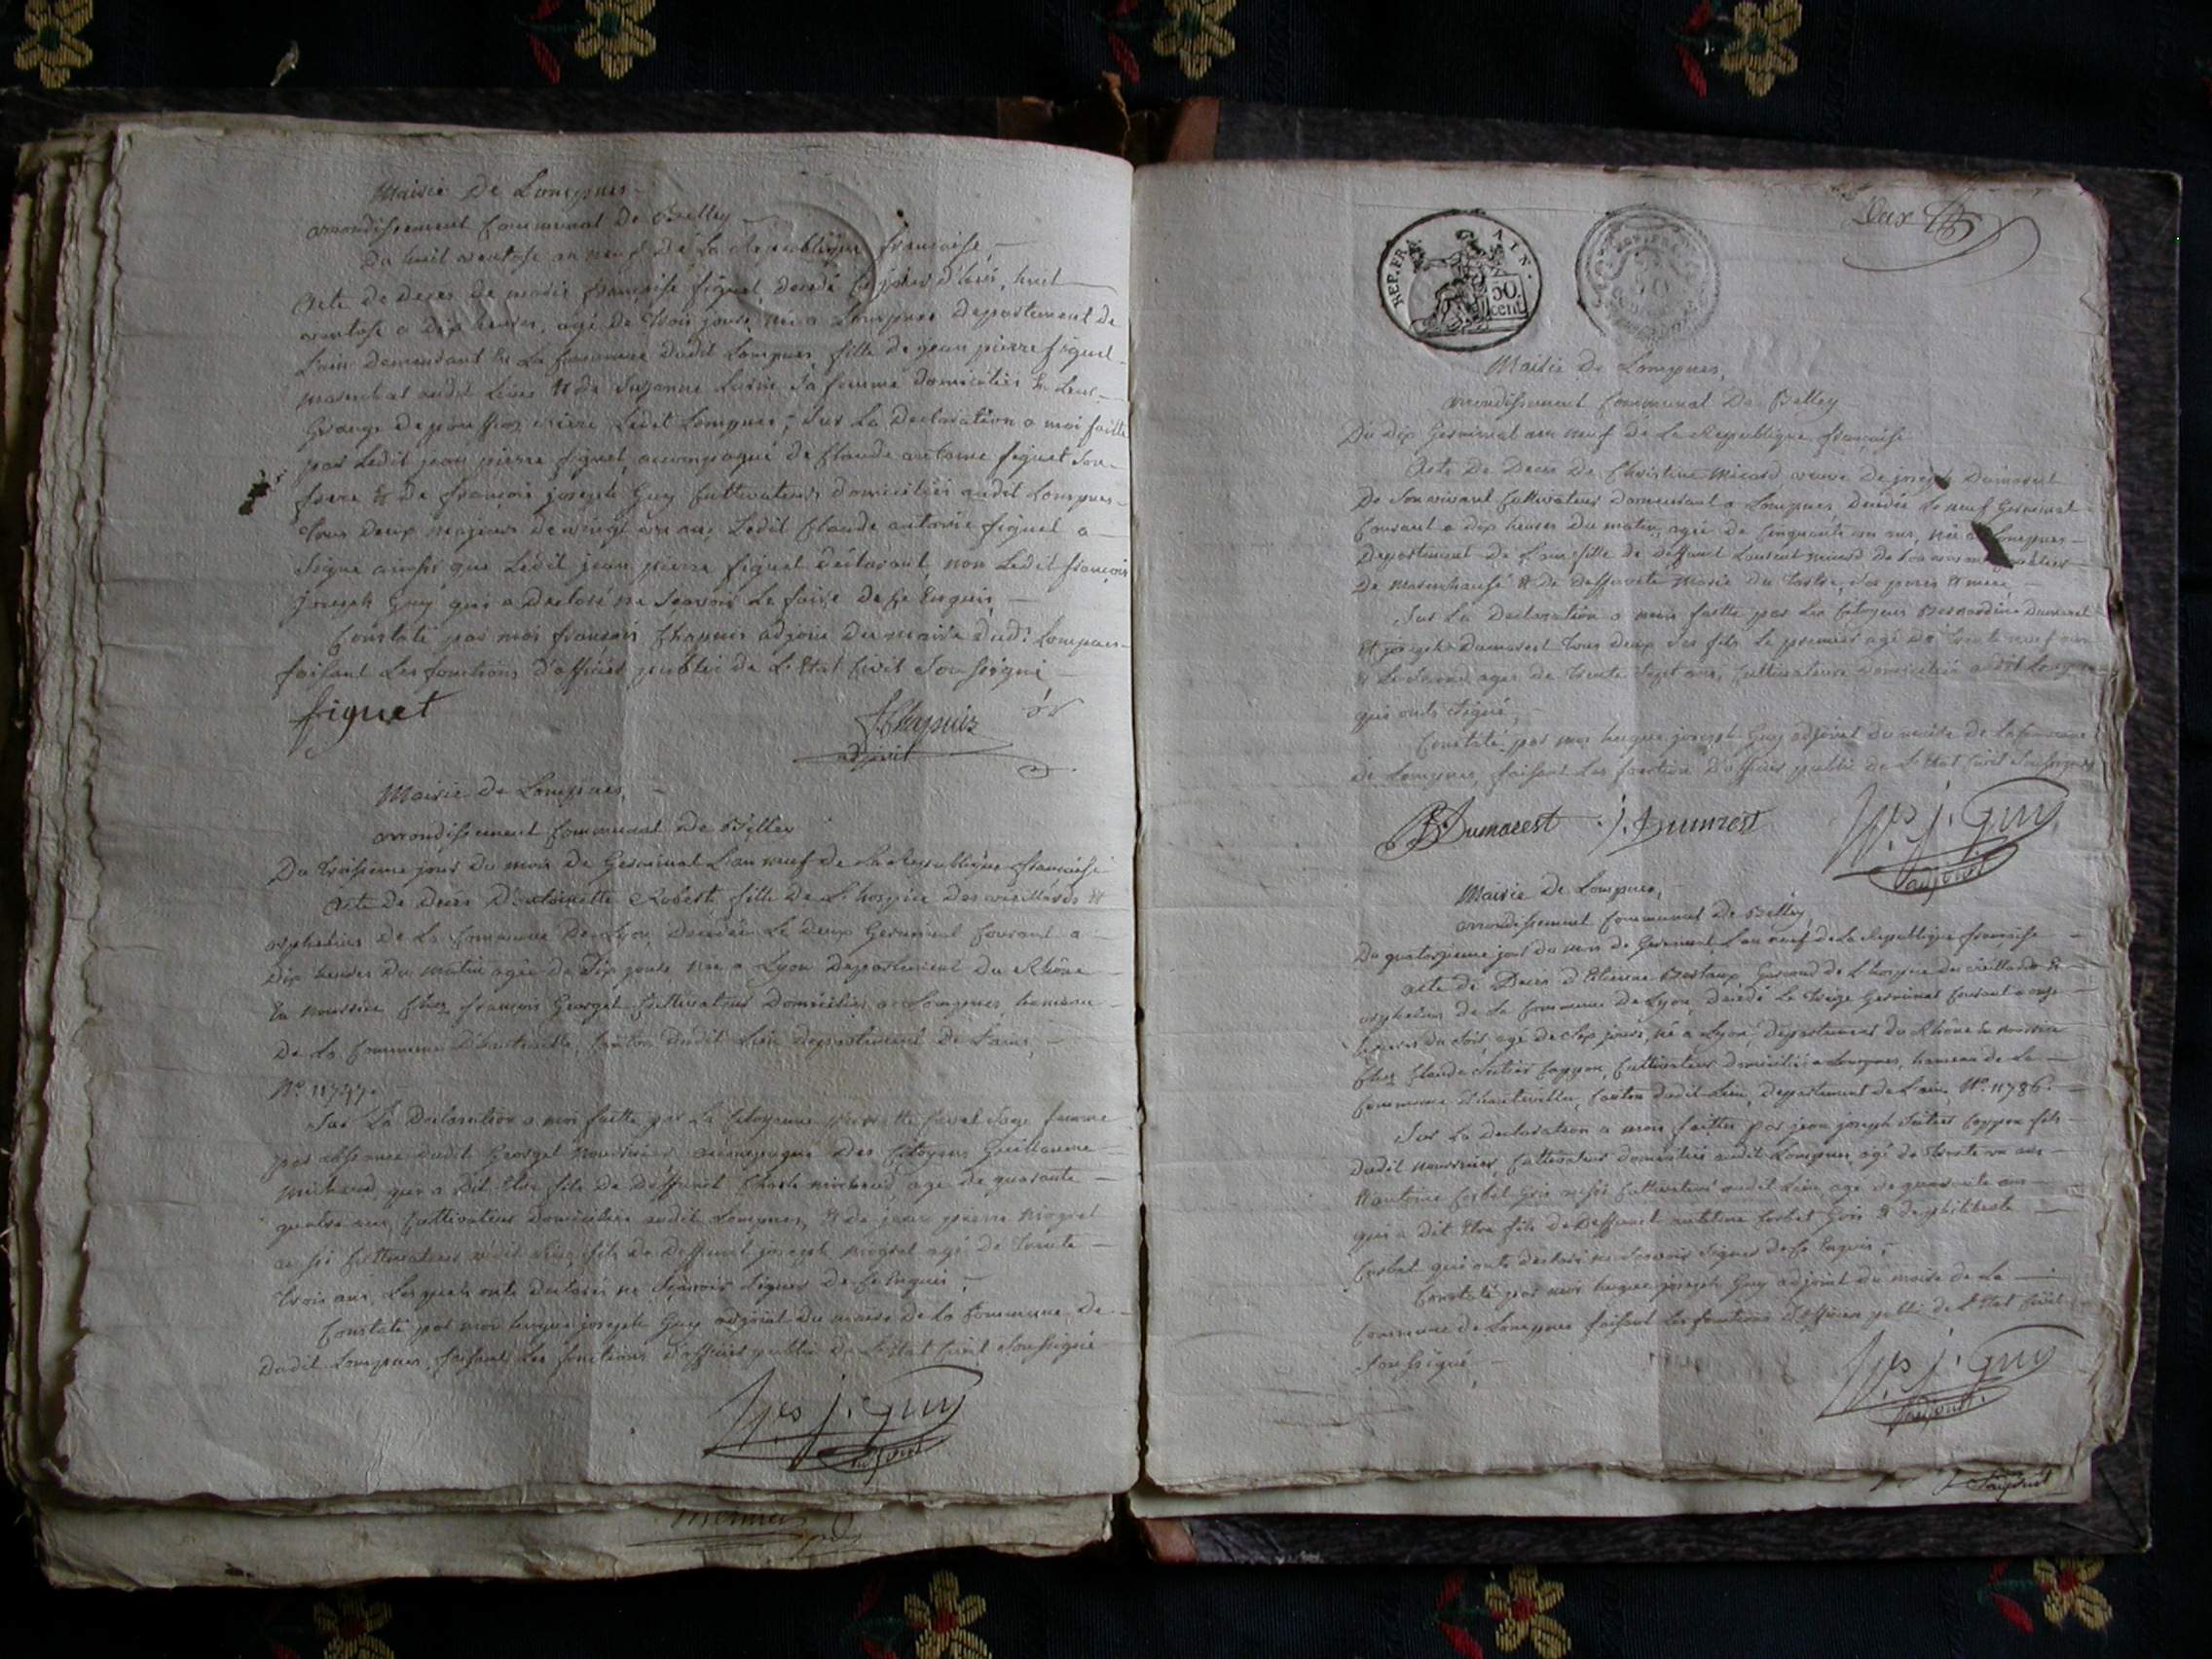 Mairie De Lompnes
arrondissement Communal De Belley
Du huit ventose an neuf de La Republique francaise,
Acte de Deces de marie françoise figuet, décedé d'hier, huit
ventose a Dix heures, agé de trois jours, née a Lompnes Departement de
L'ain Demeurant En La Commune dudit Lompnes, fille de jean pierre figuet
marechal audit Lieu Et de Suzanne sa femme domiciliés En Leur
Grange de Ledit Lompnes, Sur La Declaration a moi faitte
par Ledit jean pierre figuet, accompagné de Claude antoine figuet Son
frere Et de françois joseph Guy Cultivateurs domiciliés audit Lompnes
tous deux majeurs de vingt un ans, Ledit Claude antoine figuet a
Signé ainsi que Ledit jean pierre figuet Déclarant, non Ledit françois
joseph Guy qui a Declaré ne Scavoir Le faire de Ce Enquis,
Constaté par moi françois Chapuis adjoint du maire dudt Lompnes
faisant Les fonctions d'officier public de L'Etat Civil Soussigné
figuet
f Chapuis
adjoint
Mairie de Lompnes,
arrondissement Communal de Belley
Du troisieme jour du mois de Germinal L'an neuf de La Republique francaise
Acte de Deces D'antoinette Robert fille de L'hospice des vieillards Et
orphelins de La Commune De Lyon, Décédée Le deux Germinal Courant a
Dix heures du matin agée de Dix jours, née a Lyon departement du Rhône
En nourrice Chez françois Georget Cultivateur Domicilié a Lompnes, hameau
De La Commune D'hauteville, Canton dudit Lieu departement de L'ain,
No. 11747.
Sur La Declaration a moi faitte par La Citoyenne Sage femme
par absence dudit Georget nourricier, accompagné Des Citoyens Guillaume
michaud, qui a Dit Etre fils De Deffunt Charle michaud, agé de quarante
quatre ans, Cultivateur domicilié audit Lompnes, Et de jean pierre
aussi Cultivateur audit Lieu, fils de Deffunt joseph agé de trente
trois ans, Lesquels ont declaré ne Sçavoir Signer de Ce Enquis,
Constaté par moi hugue joseph Guy adjoint du maire de La Commune de
Dudit Lompnes, faisant Les fonctions d'officier public de L'Etat Civil Soussigné
Hges j. Guy
adjoint
Deux
REP. FRA. AIN.
50
cent.
Mairie De Lompnes,
arrondissement Communal De Belley
Du Dix Germinal an neuf de La Republique française
Acte De Deces De Christine Micard veuve De joseph Dumarest
De Son vivant Cultivateur Demeurant a Lompnes, Décédée Le neuf Germinal
Courant a Dix heures Du matin, agée de Cinquante un ans, née a Lompnes
Departement de L'ain fille de deffunt Laurent micard de Son vivant
De Et de deffunte Marie du tartre, Ses peres Et mere,
Sur La Declaration a moi faitte par Les Citoyens Bernardin Dumarest
Et joseph Dumarest tous deux Ses fils Le premier agé De trente neuf ans
Et Le Second agés de trente Sept ans, Cultivateurs domiciliés audit Lompnes
qui ont Signé,
Constaté par moi hugue joseph Guy adjoint du maire de La Commune
de Lompnes, faisant Les fonctions d'officier public de L'Etat Civil Soussigné
B Dumarest j. Dumrest Hges j. Guy
adjoint
Mairie de Lompnes,
arrondissement Communal de Belley,
Du quatorzieme jour du mois de Germinal L'an neuf de La Republique française
acte de Deces d'Etienne Garcond de L'hospice des vieillards Et
orphelins de La Commune de Lyon, décedé Le treize Germinal Courant a onze
heures du Soir, agé de Dix jours, né a Lyon, Departement du Rhône En nourrice
Chez Claude Cultivateur domicilié a Lompnes, hameau de La
Commune d'hauteville, Canton dudit Lieu, Departement de L'ain, No. 11786.
Sur La declaration a moi faitte par jean joseph fils
dudit nourricier, Cultivateur domicilié audit Lompnes, agé de trente un ans
Et antoine Corbet Gris aussi Cultivateur audit Lieu agé de quarante ans
qui a dit Etre fils de deffunt Corbet Gris Et de philiberte
Corbet qui ont declaré ne Sçavoir Signer de Ce Enquis,
Constaté par moi hugue joseph Guy adjoint du maire de La
Commune de Lompnes faisant Les fonctions d'officier public de L'Etat Civil
Soussigné
Hges j. Guy
adjoint.